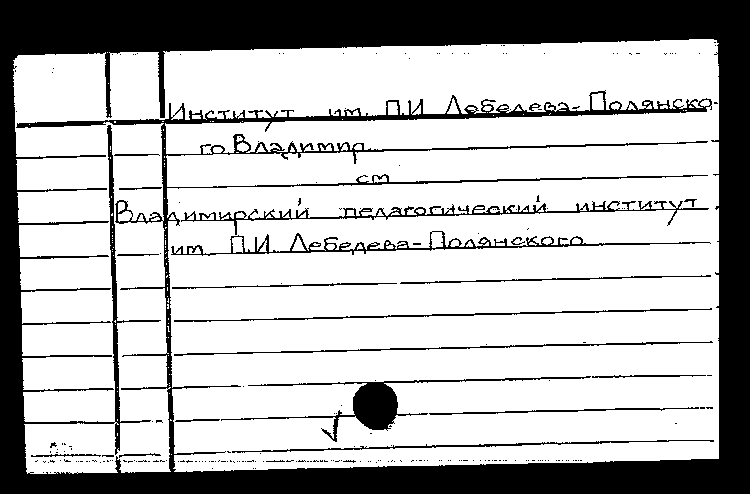 Институт им. П.И Лебедева-Полянско-
го.Владимир.
см
Владимирский педагогический институт
им. П.И. Лебедева-Полянского